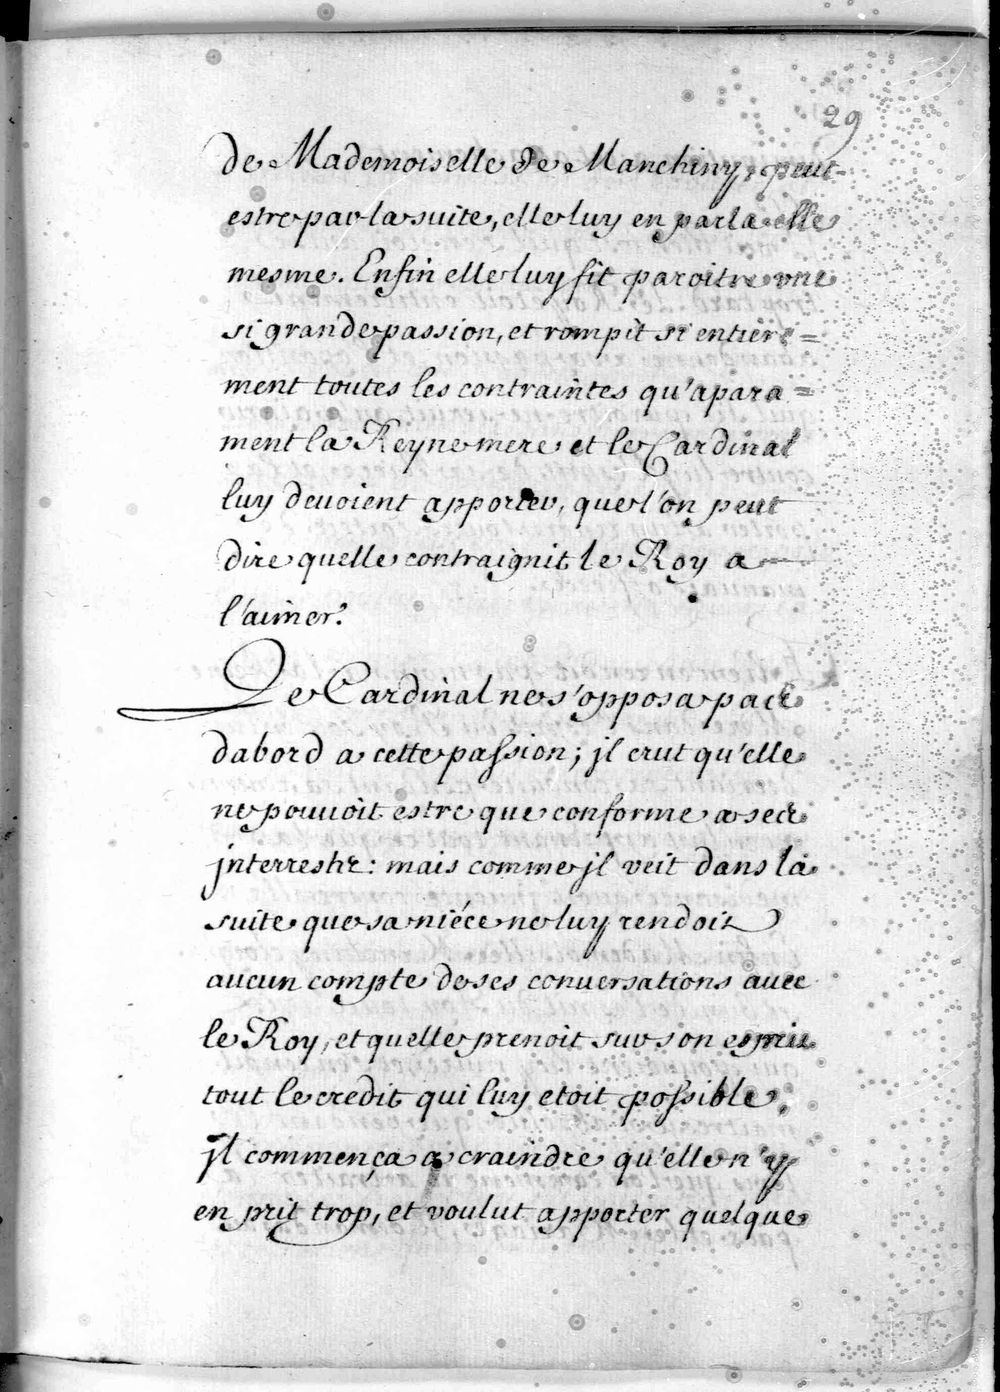 29
de Mademoiselle de Manchiny, peut
estre par la suite, elle luy en parla elle
mesme. Enfin elle luy fit paroitre vne
si grande passion, et rompit si entiere=
ment toutes les contraintes qu'apara=
ment la Reyne mere et le Cardinal
luy devoient apporter, que l'on peut
dire quelle contraignit le Roy a
l'aimer.
Le Cardinal ne s'opposa pas
dabord a cette passion; jl crut qu'elle
ne pouvoit estre que conforme a ses
jnterrestz: mais comme jl veit dans la
suite que sa niéce ne luy rendoit
aucun compte de ses conversations avec
le Roy, et quelle prenoit sur son esprit
tout le credit qui luy etoit possible,
jl commença a craindre qu'elle n'y
en prit trop, et voulut apporter quelque